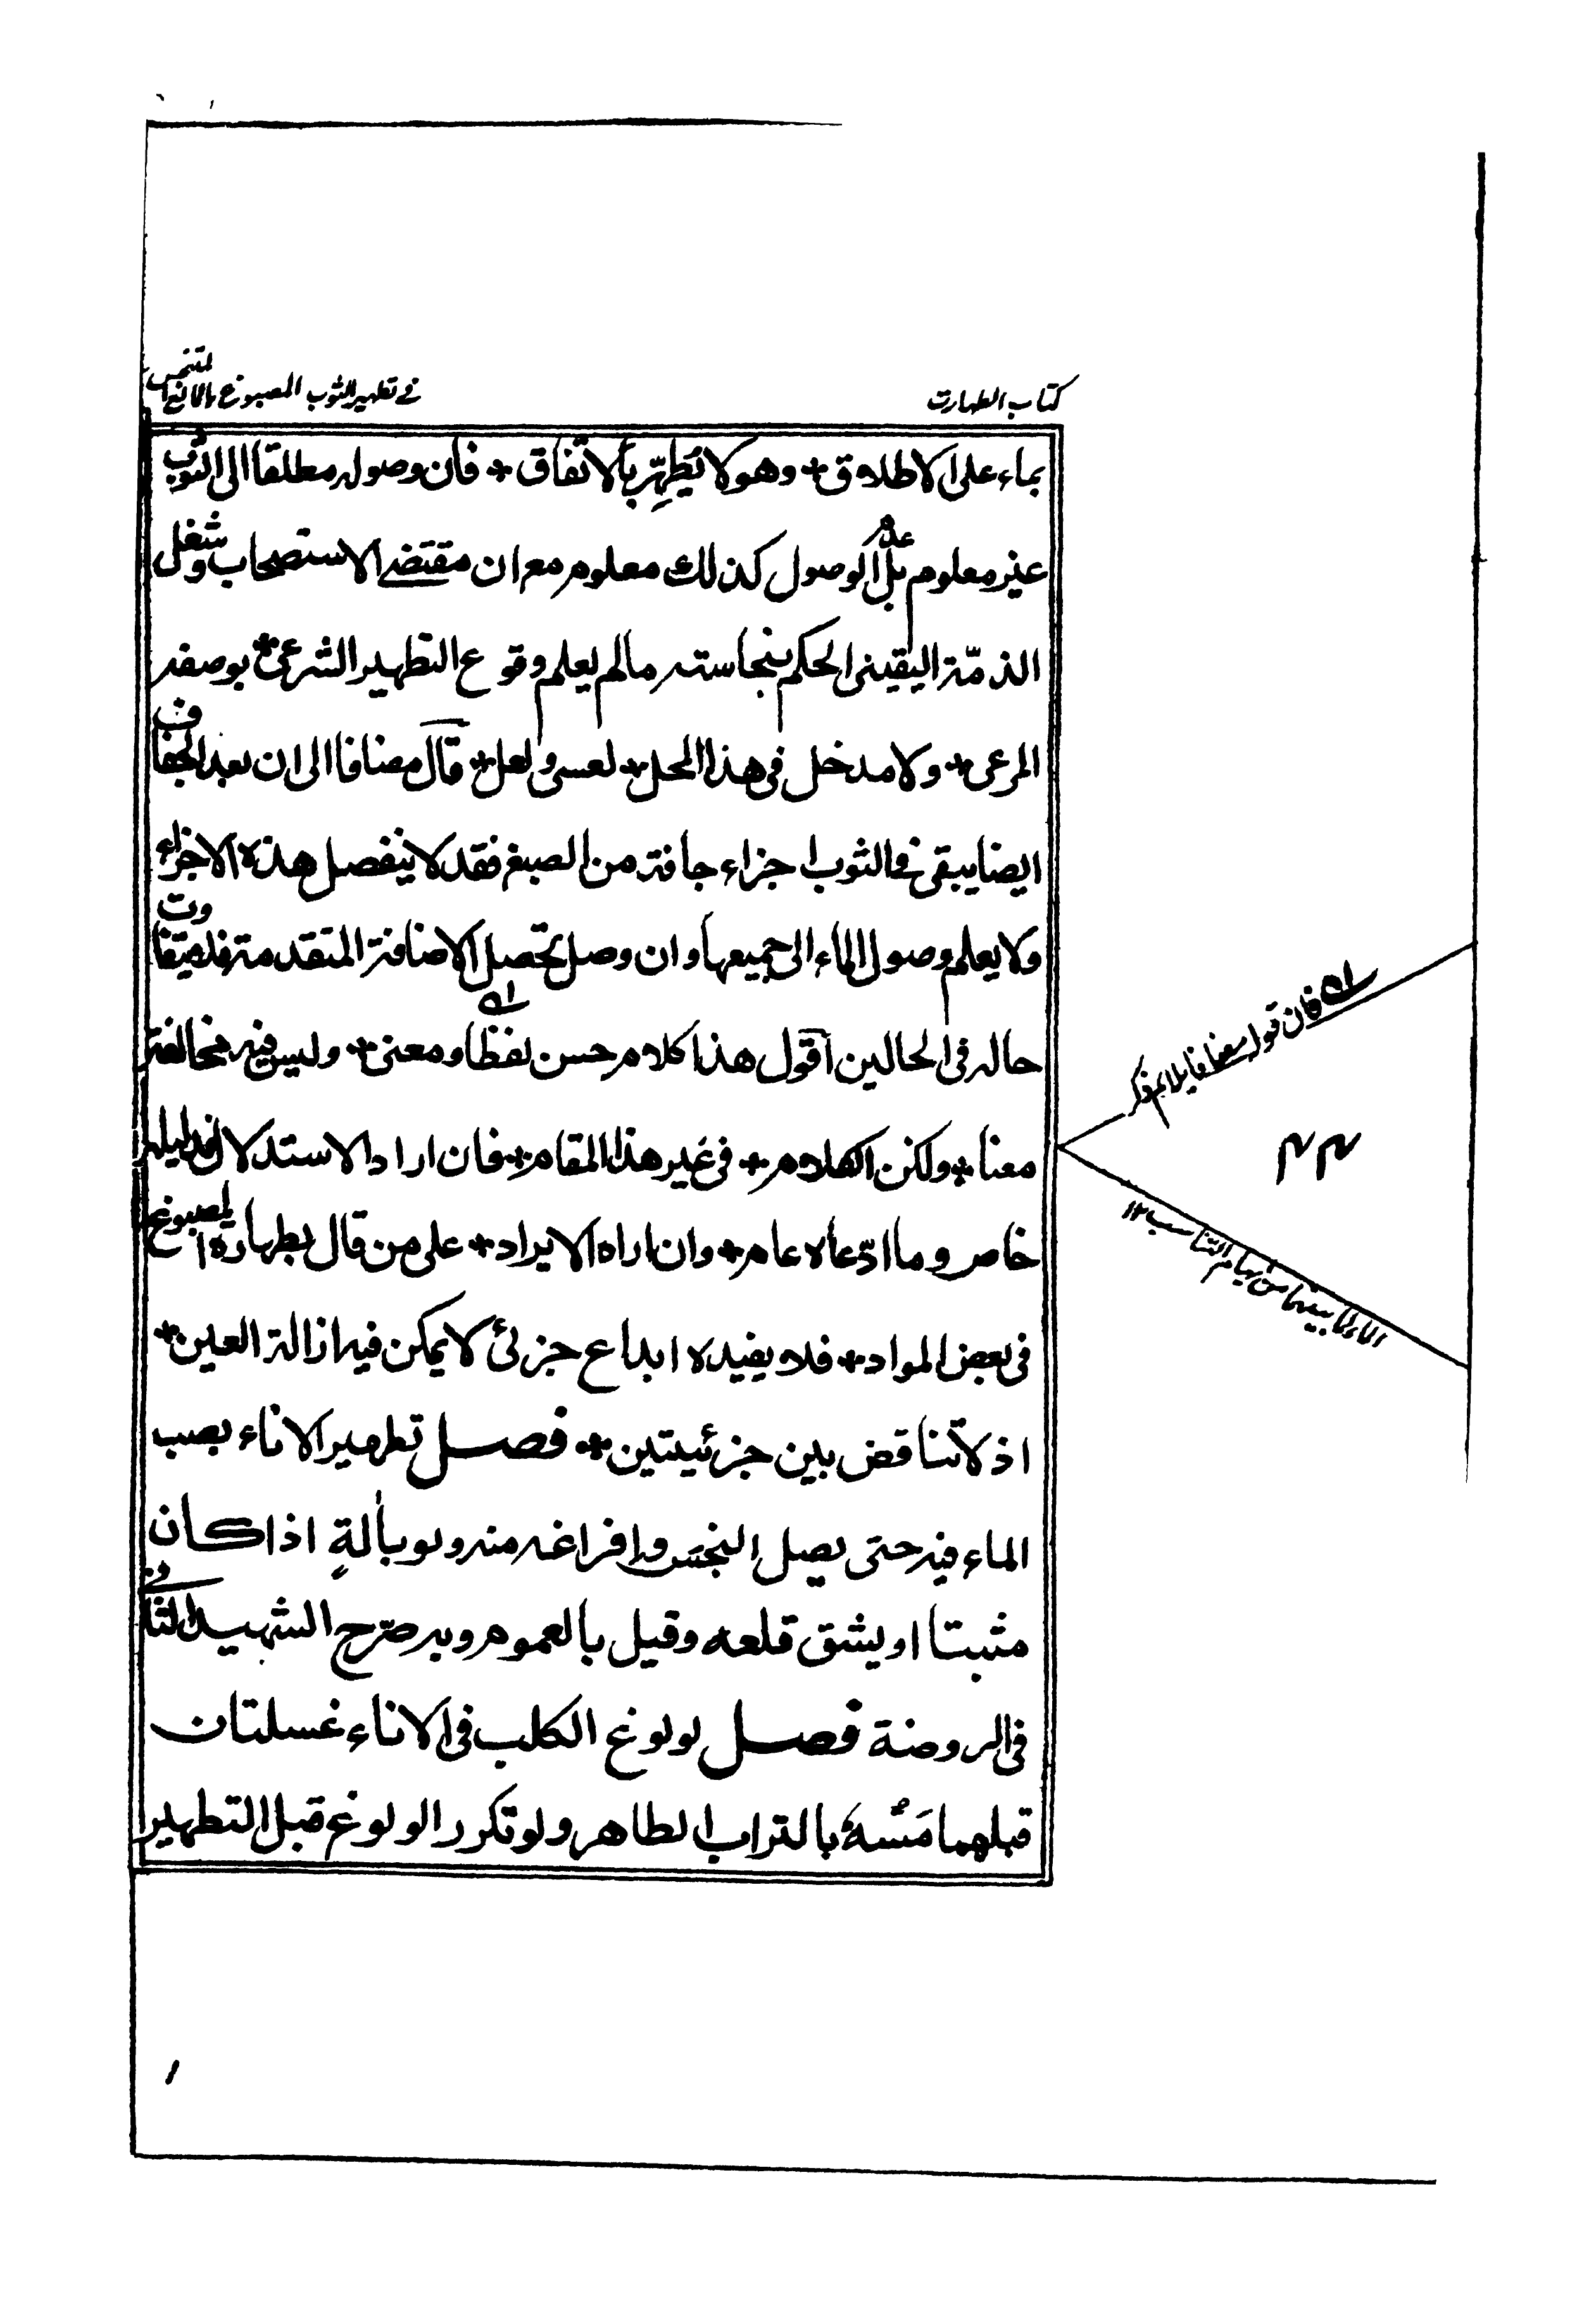 كتاب الطهارت
في تطهير الثوب المصبوغ بالمائع المتنجس
بماء على الاطلاق * وهو لا يُطهِّر بالاتفاق * فان وصوله مطلقا الى الثوب
غير معلوم بل عدم الوصول كذلك معلوم مع ان مقتضى الاستصحاب وشغل
الذمّة اليقينى الحكم بنجاسته مالم يعلم وقوع التطهير الشرعى * بوصفه
المرعى * ولا مدخل فى هذا المحل * لعسى ولعل * قال مضافا الى ان بعد الجفاف
ايضا يبقى فى الثوب اجزاء جافة من الصبغ فقد لا ينفصل هذه الاجزاء
ولا يعلم وصول الماء الى جميعها وان وصل تحصل الاضافة المتقدمة فلا يتفاوت
حاله فى الحالين اقول هذا كلام حسن لفظا ومعنى * وليس فيه مخالفة
معنا * ولكن الكلام * فى غير هذا المقام * فان اراد الاستدلال فدليله
خاص وما ادّعاه عام * وان اراه الايراد * على من قال بطهارة المصبوغ
فى بعض المواد * فلا يفيده ابداع جزئى لا يمكن فيه ازالة العين *
اذ لا تناقض بين جزئيتين * فصل تطهير الاناء بصب
الماء فيه حتى يصل النجس وافراغه منه ولو بآلةٍ اذا كان
مثبتا او يشق قلعه وقيل بالعموم وبه صرّح الشهيد الثانى
فى الروضة فصل لولوغ الكلب فى الاناء غسلتان
قبلهما مَسُّهُ بالتراب الطاهر ولو تكرر الولوغ قبل التطهير
فان قوله مضافا يلائم ذكر
الماء لما بينهما من ايهام التناسب ١٢